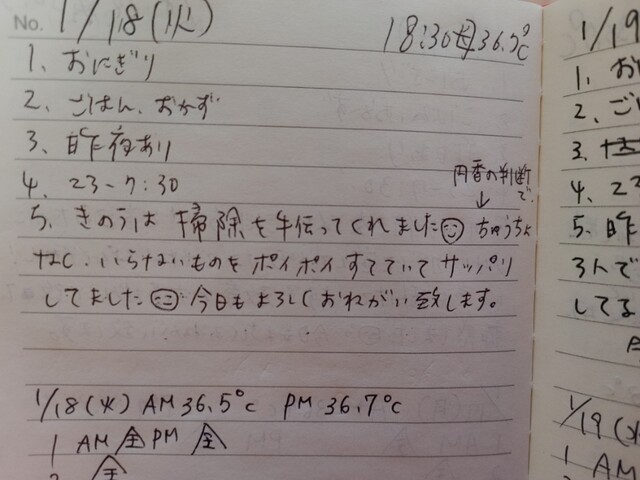 No. 1/18(火) 18:30 36.7℃
1、おにぎり
2、ごはん、おかず
3、昨夜あり
4、23-7:30
の判断で
↓
5、きのうは掃除を手伝ってくれました☺ ちゅうちょ
なく、いらないものをポイポイすてていてサッパリ
してました☺ 今日もよろしくおねがい致します。
1/18(火) AM36.5℃ PM 36.7℃
1 AM 全 PM 全
2 全
1/19
1、お
2、ご
3、
4、22
5、昨
3人で
してる
1/19(水
1 AM